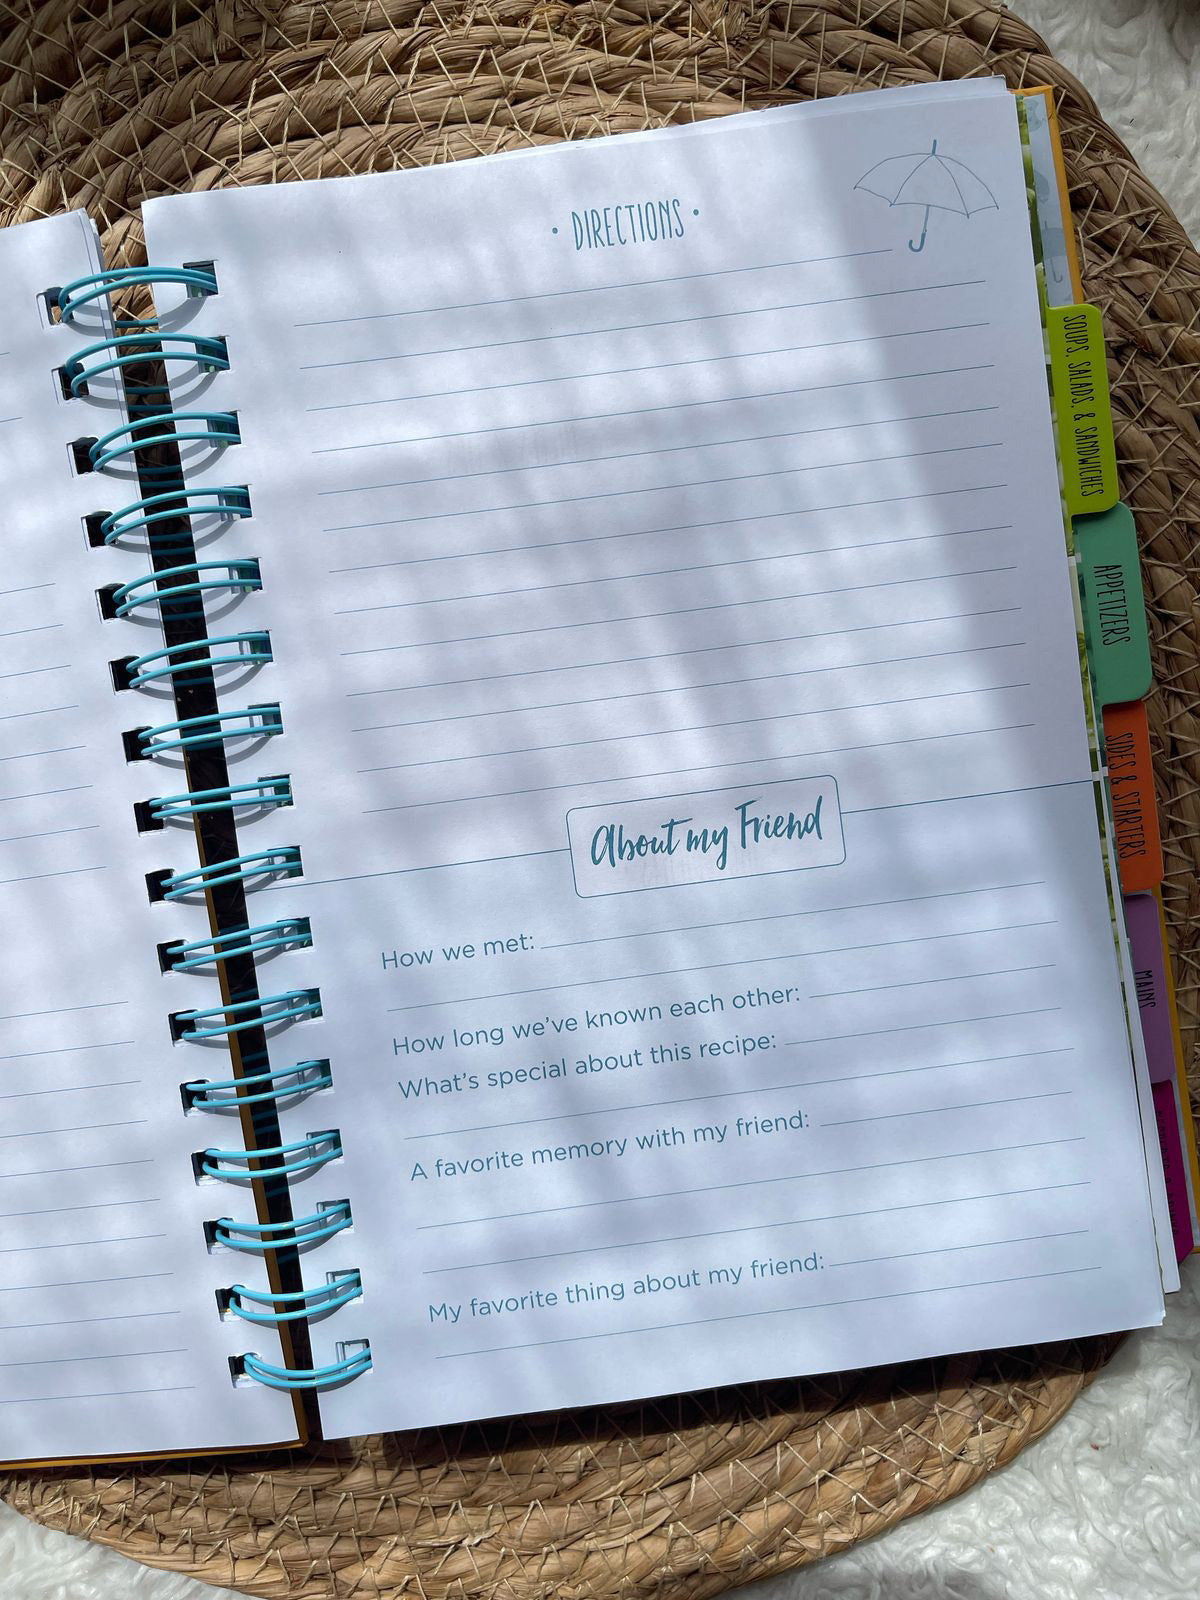 • DIRECTIONS •
About my Friend
How we met:
How long we've known each other:
What's special about this recipe:
A favorite memory with my friend:
My favorite thing about my friend:
SOUPS, SALADS, & SANDWICHES
APPETIZERS
SIDES & STARTERS
MAINS